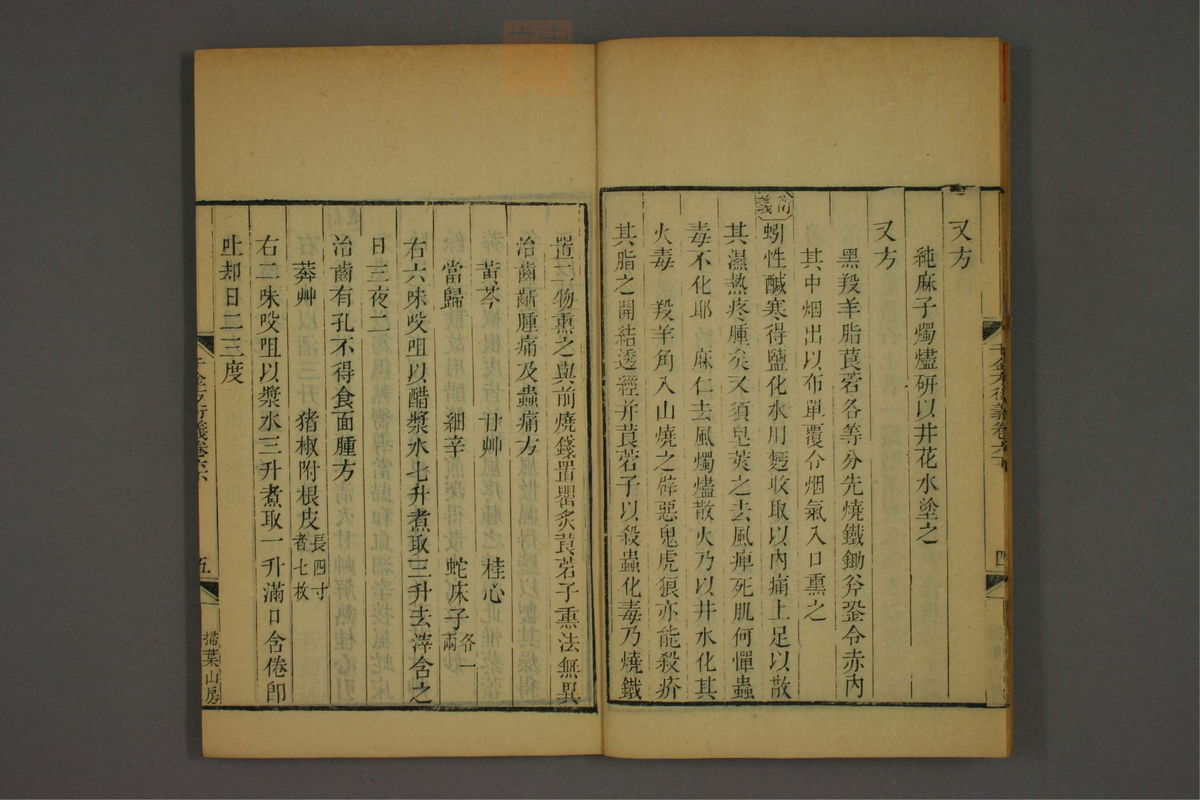 又方
純麻子燭燼研以井花水塗之
又方
黑羖羊脂莨菪各等分先燒鐵鋤斧銎令赤內
其中烟出以布單覆令烟氣入口熏之
衍義
蚓性鹹寒得鹽化水用麪收取以內痛上足以散
其濕熱疼腫矣又須皂莢之去風痺死肌何憚蟲
毒不化耶 麻仁去風燭燼散火乃以井水化其
火毒 羖羊角入山燒之辟惡鬼虎狼亦能殺疥
其脂之開結透經并莨菪子以殺蟲化毒乃燒鐵
千金方衍義卷六
四
置二物熏之與前燒錢置罌炙莨菪子熏法無異
治齒齗腫痛及蟲痛方
黃芩 甘艸 桂心
當歸 細辛 蛇床子各一兩
右六味㕮咀以醋漿水七升煮取三升去滓含之
日三夜二
治齒有孔不得食面腫方
莽艸 猪椒附根皮長四寸者七枚
右二味㕮咀以漿水三升煮取一升滿口含倦卽
吐却日二三度
千金方衍義卷六
五
掃葉山房